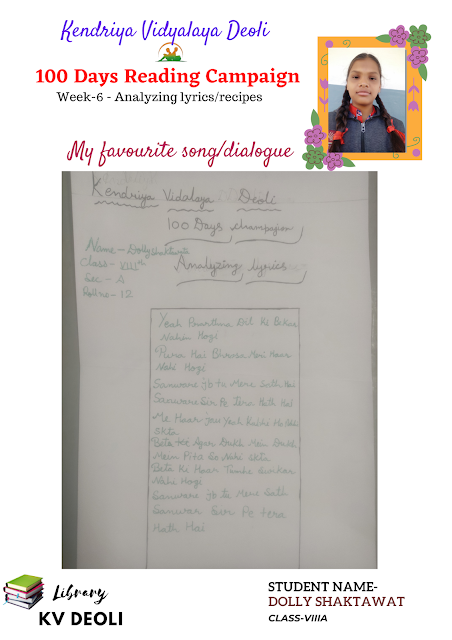 Kendriya Vidyalaya Deoli
100 Days Reading Campaign
Week-6 - Analyzing lyrics/recipes
My favourite song/dialogue
Kendriya Vidalaya Deoli
100 Days champagion
Name - Dolly shaktawat
Class - VIIIth
Sec - A
Roll no - 12
Analyzing lyrics
Yeah Prarthna Dil Ki Bekar
Nahin Hogi
Pura Hai Bhrosa Meri Haar
Nahi Hogi
Sanware jb tu Mere Sath Hai
Sanware Sir Pe tera Hath Hai
Me Haar jau Yeah Kabhi Ho Nhi
Skta
Beta Agar Dukh Mein Dukhi
Main Pita So Nahi Skta
Beta Ki Haar Tumhe Sunkar
Nahi Hogi
Sanware jb tu Mere Sath
Sanwar Sir Pe tera
Hath Hai
Library
KV DEOLI
STUDENT NAME-
DOLLY SHAKTAWAT
CLASS-VIIIA